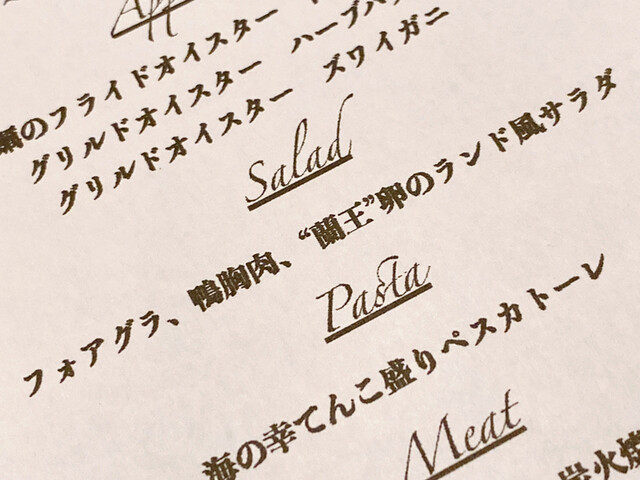 のフライドオイスター
グリルドオイスター ハーブバ
グリルドオイスター ズワイガニ
Salad
フォアグラ、鴨胸肉、“蘭王”卵のランド風サラダ
Pasta
海の幸てんこ盛りペスカトーレ
Meat
炭火焼